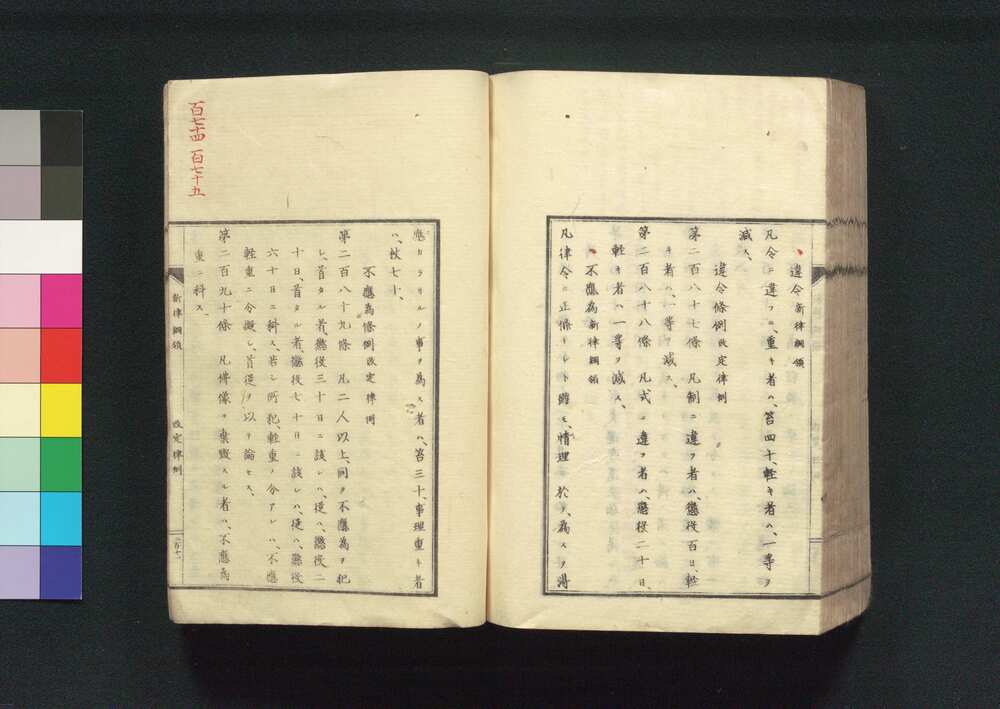 違令 新律綱領
凡令ニ違フニ、重キ者ハ、笞四十、軽キ者ハ、一等ヲ
減ス、
違令條例 改定律例
第二百八十七條 凡制ニ違フ者ハ、懲役百日、軽
キ者ハ、一等ヲ減ス、
第二百八十八條 凡式ニ違フ者ハ、懲役二十日、
軽キ者ハ一等ヲ減ス、
不應為 新律綱領
凡律令ニ正條ナシト雖モ、情理ニ於テ、為スヲ得
應カラサルノ事ヲ為ス者ハ、笞三十、事理重キ者
ハ、杖七十、
不應為條例 改定律例
第二百八十九條 凡二人以上、同ク不應為ヲ犯
シ、首タル者、懲役三十日ニ該レハ、從ハ、懲役二
十日、首タル者、懲役七十日ニ該レハ、從ハ、懲役
六十日ニ科ス、若シ所犯、軽重ノ分アレハ、不應
軽重ニ分擬シ、首從ヲ以テ論セス、
第二百九十條 凡佛像ヲ棄毀スル者ハ、不應為
重ニ科ス、
新律綱領
改定律例
百七十四 百七十五